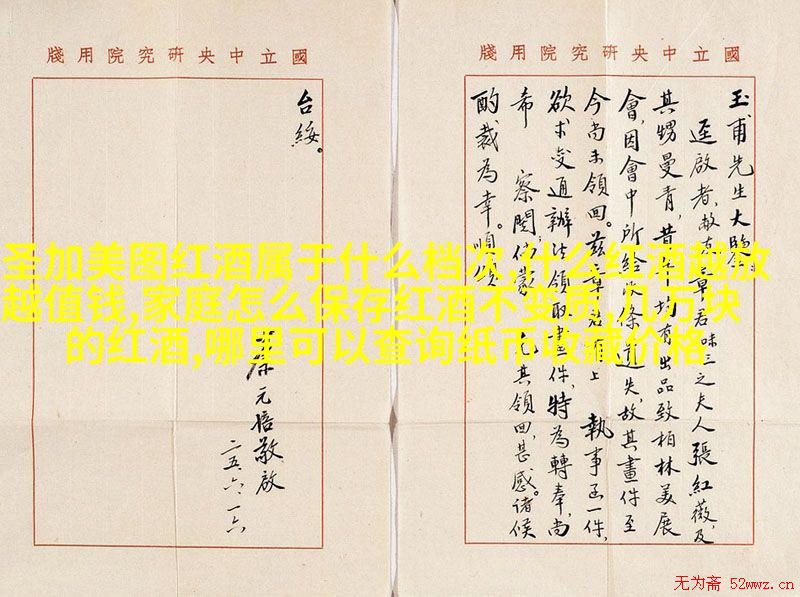 國立中央研究院用牋
玉甫先生大鑒
逕啟者，敝友章君味三之夫人張紅薇，及
其甥曼青，昔年均有出品致柏林美展
會，因會中所給收條遺失，故其畫件至
今尚未領回。茲章君有上 執事函一件，
欲求變通辦法領取畫件，特為轉奉，尚
希 察閱，倘蒙 允其領回，甚感。諸候
酌裁為幸。順頌
國立中央研究院用牋
台綏。
蔡元培敬啟
二五、六、一六
圣加美图红酒属于什么档次,什么红酒越放
越值钱,家庭怎么保存红酒不变质,几万块
的红酒,哪里可以查询纸币收藏价格
无为斋 52wwz.cn